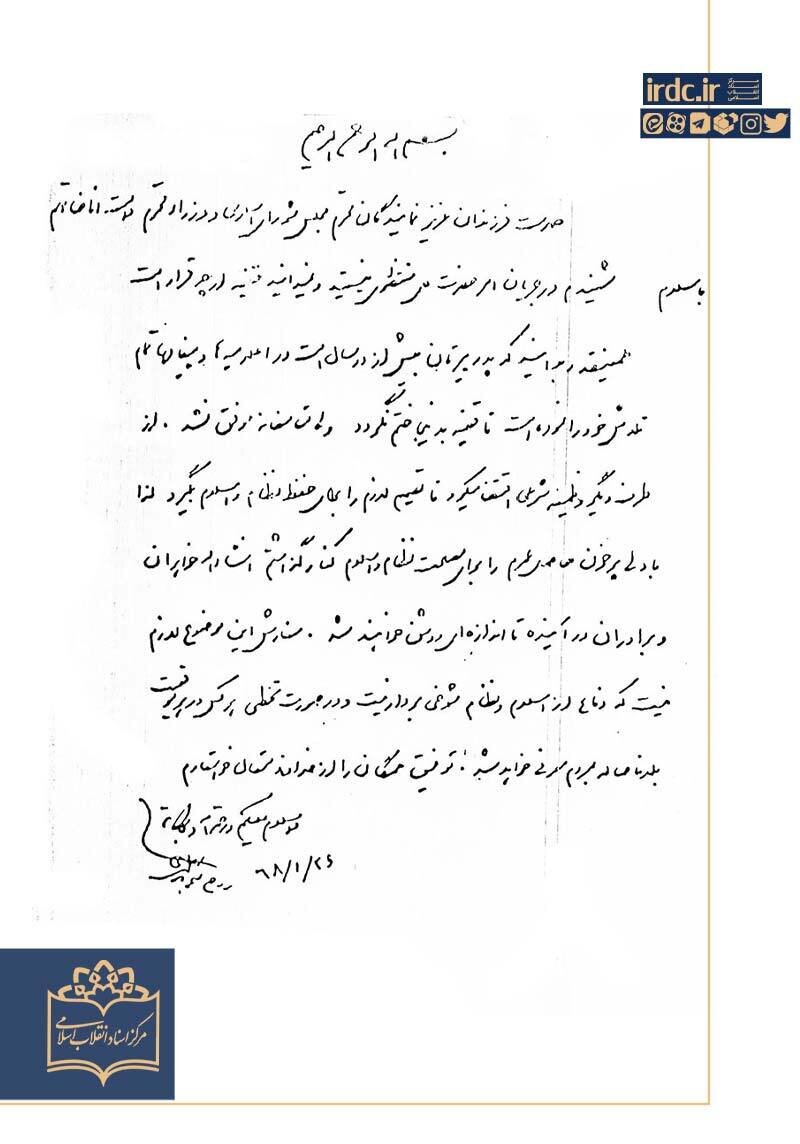 irdc.ir
مرکز اسناد انقلاب اسلامی
بسم الله الرحمن الرحیم
خدمت فرزندان عزیز نمایندگان محترم مجلس شورای اسلامی و وزراء محترم دامت افاضاتهم
با سلام شنیدم در جریان امر حضرت آقای منتظری نیستید و نمیدانید قضیه از چه قرار است
همینقدر بدانید که پدر پیرتان بیش از دو سال است در اعلامیه‌ها و پیغامها تمام
تلاش خود را نموده است تا قضیه بدینجا ختم نگردد ولی متاسفانه موفق نشد . از
طرف دیگر وظیفه شرعی اقتضا میکرد تا تصمیم لازم را برای حفظ نظام و اسلام بگیرد لذا
با دلی پرخون حاصل عمرم را برای مصلحت نظام و اسلام کنار گذاشتم انشاءالله خواهران
و برادران در آینده تا اندازه‌ای روشن خواهند شد . سفارش این موضوع لازم
نیست که دفاع از اسلام و نظام شوخی بردار نیست و در صورت تخطی هر کس در هر موقعیت
بلافاصله به مردم معرفی خواهد شد . توفیق همگان را از خداوند متعال خواستارم
والسلام علیکم و رحمة الله و برکاته
۶۸/۱/۲۶
روح الله الموسوی الخمینی
مرکز اسناد انقلاب اسلامی